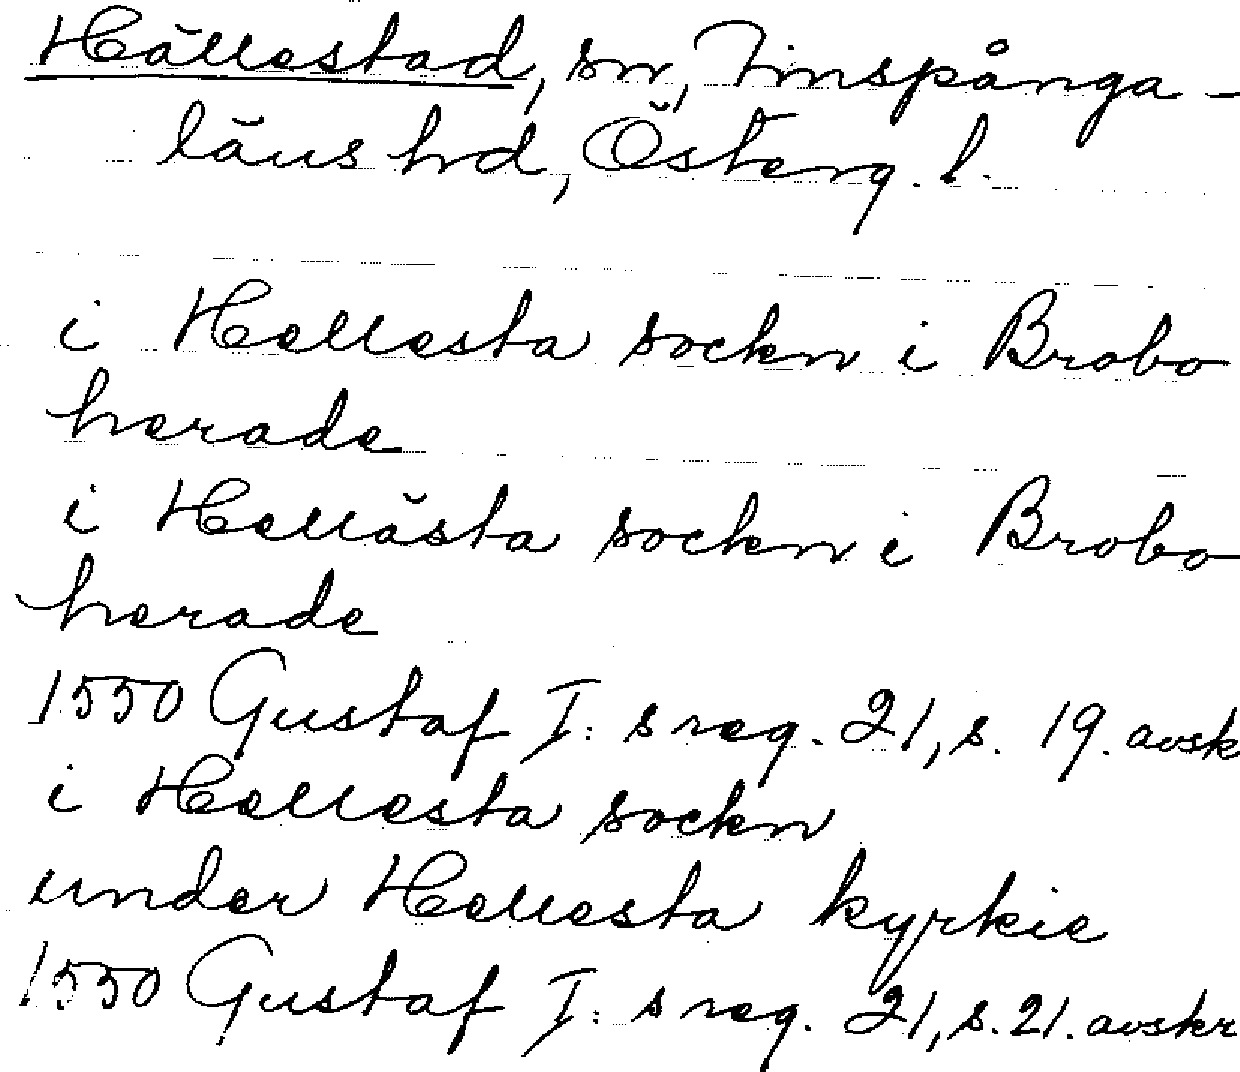 Hällestad, sn, Finspånga-
läns hd, Österg. l.
i Hellesta sockn i Brobo
herade
i Hellästa sockn i Brobo
herade
1550 Gustaf I:s reg. 21, s. 19. avsk
i Hellesta sockn
under Hellesta kyrkie
1550 Gustaf I:s reg. 21, s. 21. avskr